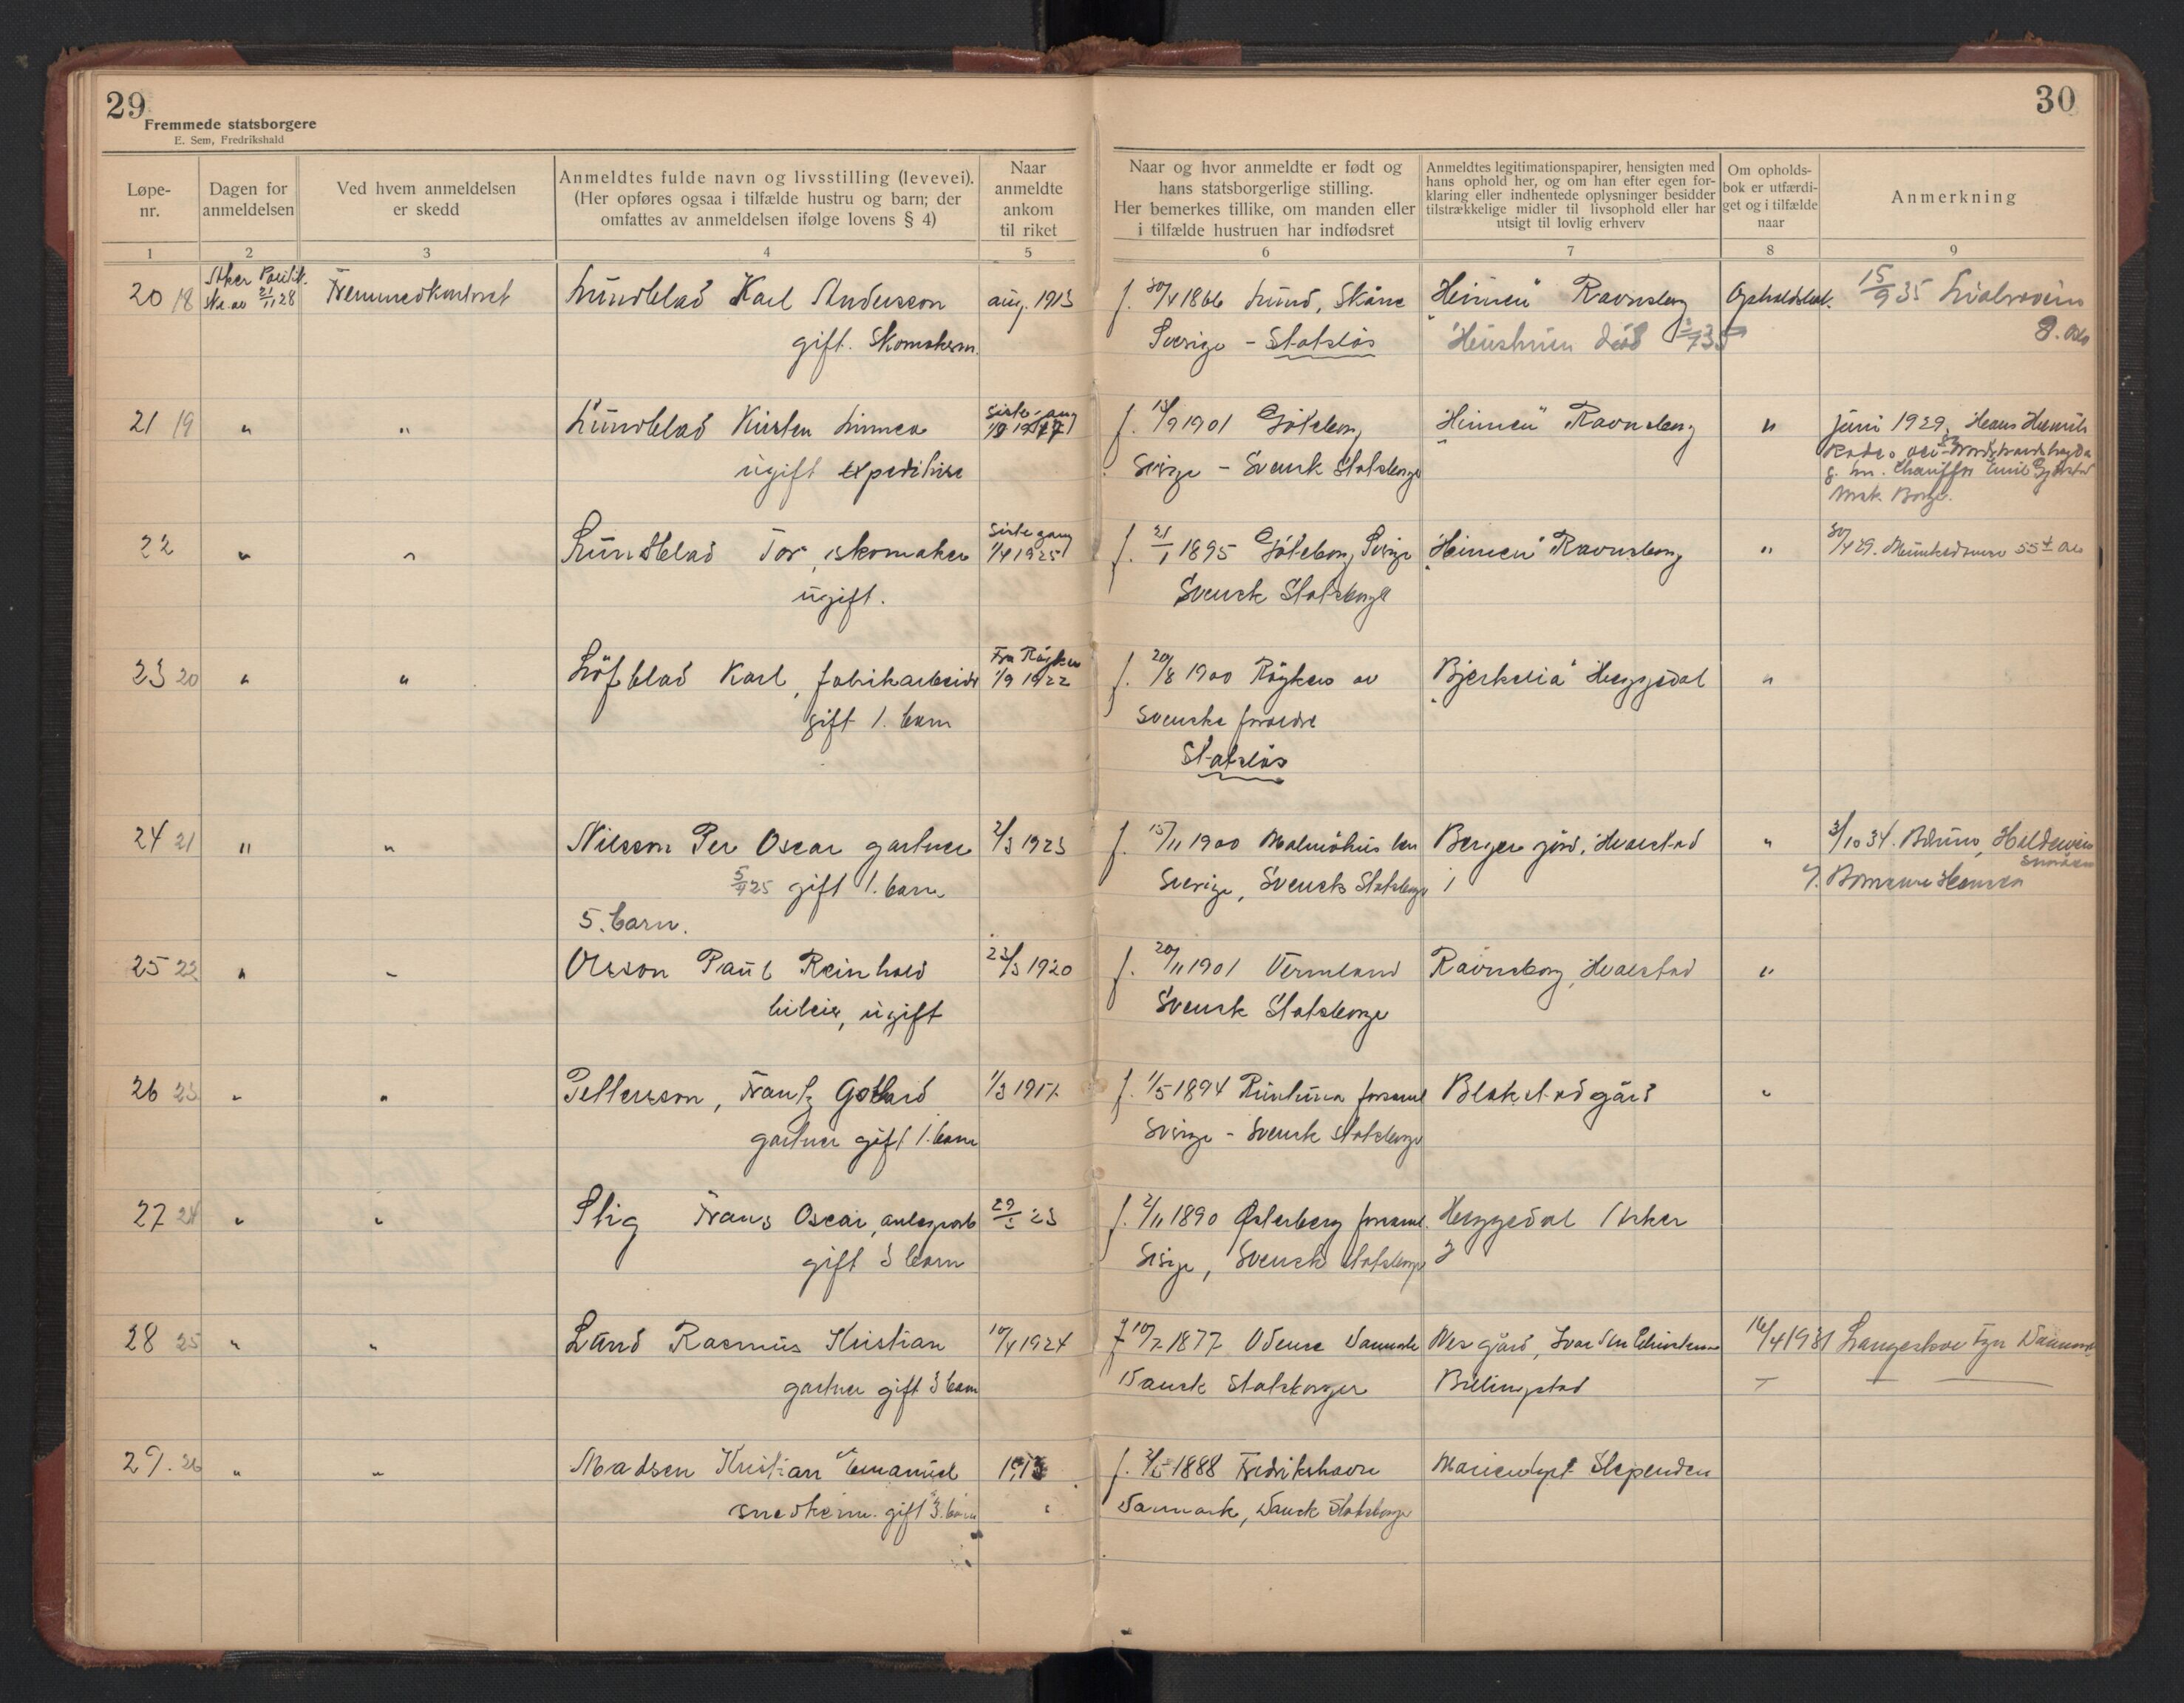 29
Fremmede statsborgere
E. Sem, Fredrikshald
30
Løpe-
nr.
Dagen for
anmeldelsen
Ved hvem anmeldelsen
er skedd
Anmeldtes fulde navn og livsstilling (levevei).
(Her opføres ogsaa i tilfælde hustru og barn; der
omfattes av anmeldelsen ifølge lovens § 4)
Naar
anmeldte
ankom
til riket
Naar og hvor anmeldte er født og
hans statsborgerlige stilling.
Her bemerkes tillike, om manden eller
i tilfælde hustruen har indfødsret
Anmeldtes legitimationspapirer, hensigten med
hans ophold her, og om han efter egen for-
klaring eller indhentede oplysninger besidder
tilstrækkelige midler til livsophold eller har
utsigt til lovlig erhverv
Om opholds-
bok er utfærdi-
get og i tilfælde
naar
Anmerkning
1 2 3 4 5 6 7 8 9
20 18 Aker Politik. 21/11 28 Fremmedkontoret Lundblad Karl Andersson aug. 1913 f. 30/4 1866 Lund, Skåne "Heimen" Ravnsborg 15/9 35
gift. Skomakerm. Sverige - Statsløs Hustruen død
21 19 " " Lundblad Kirsten Linnea Siste gang f. 18/9 1901 Göteborg "Heimen" Ravnsborg " juni 1929.
ugift expeditrise Sverige - Svensk Statsborger
22 " " Lundblad Tor, skomaker Siste gang 1/4 1925 f. 21/1 1895 Göteborg, Sverige "Heimen" Ravnsborg " 30/4 29.
ugift. Svensk Statsborger
23 20 " " Löfblad Karl, fabrikarbeider Fra Røyken 1/9 1922 f. 20/8 1900 Røyken av "Bjerkelia" Heggedal "
gift 1. barn svenske foreldre
Statsløs
24 21 " " Nilsson Per Oscar gartner 2/3 1923 f. 15/11 1900 Malmöhus len Berger gård, Hvalstad " 3/10 34.
5/9 25 gift 1. barn Sverige, Svensk Statsborger
5. barn.
25 22 " " Olsson Paul Reinhold 22/3 1920 f. 20/11 1901 Vermland Ravnsborg, Hvalstad "
bileier, ugift Svensk Statsborger
26 23 " " Pettersson, Frantz Gotthard f. 1/5 1894 Runtuna forsaml Blakstad gård "
gartner gift 1. barn Sverige - Svensk Statsborger
27 24 " " Stig Frans Oscar, f. 2/11 1890 Østerberg forsaml. Heggedal
gift 3 barn Sverige, Svensk Statsborger
28 25 " " Lund Rasmus Kristian 10/4 1924 f. 10/7 1877 Odense Danmark Nes gård, 16/4 1931 Langeskov Fyn Danmark
gartner gift 3 barn Dansk Statsborger Billingstad
29. 26 " " Madsen Kristian Emanuel 1913 1888 Fredrikshavn Marienlyst Slependen
snekkerm. gift 3. barn Danmark, Dansk Statsborger